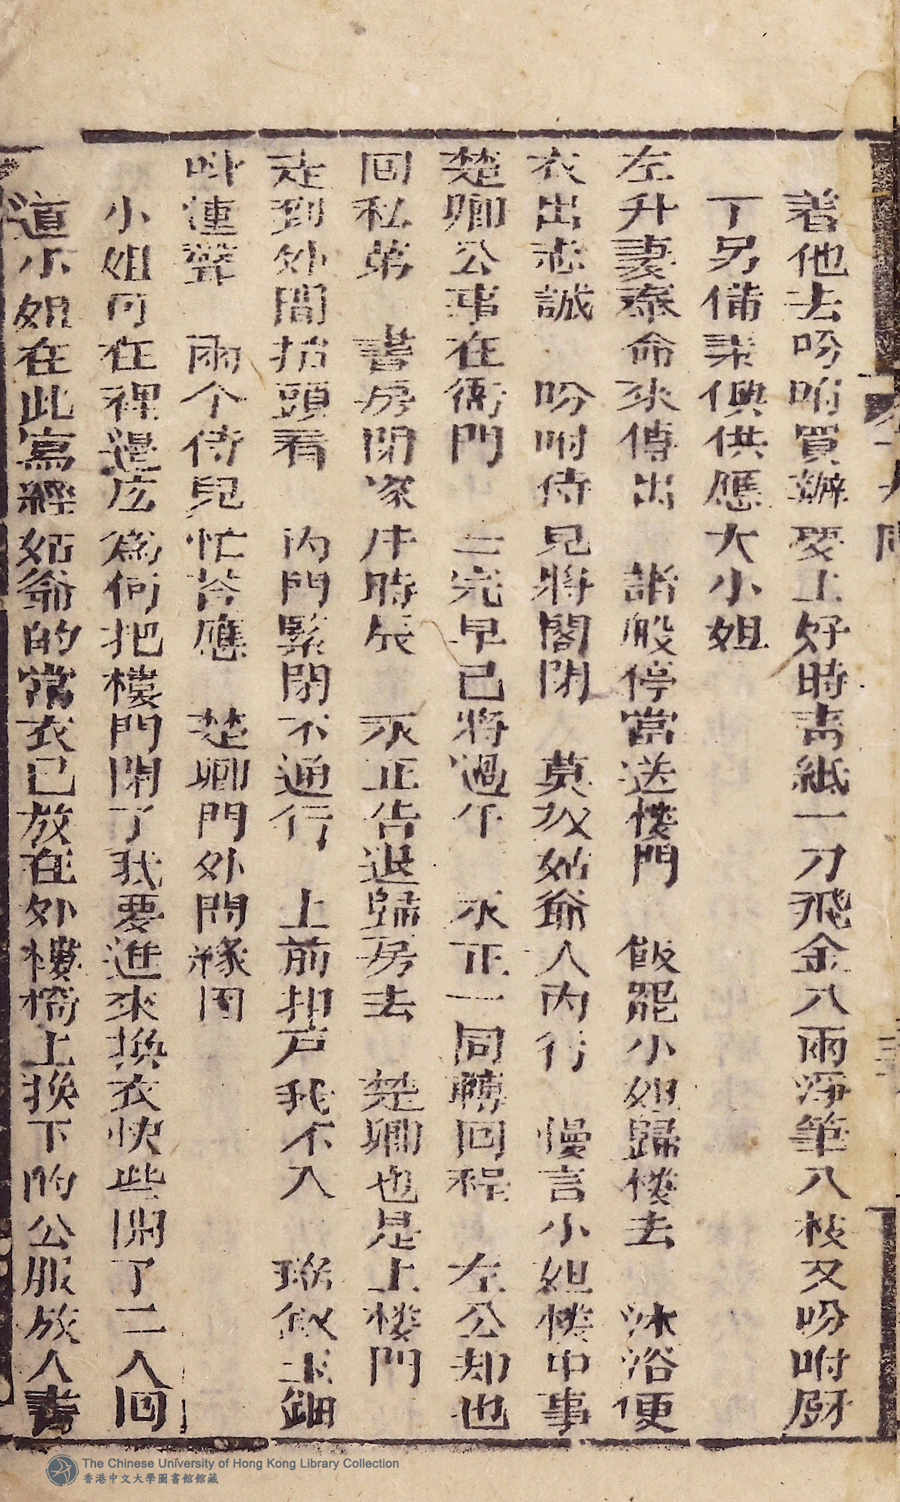 着他去吩咐買辦要上好時青紙一刀飛金八兩淨筆八枝又吩咐厨
丁另備素供供應大小姐
左升妻奉命來傳出 諸般停當送楼門 飯罷小姐歸楼去 沐浴便
衣出志誠 吩咐侍兒將閣閉 莫放姑爺人內行 慢言小姐楼中事
楚卿公事在衙門 完早已將過午 永正一同轉回程 左公却也
回私第 書房閉坐片時辰 永正告退歸房去 楚卿也是上楼門
走到外間抬頭看 內門緊閉不通行 上前扣户我不入 瑤釵玉鈿
叫連聲 兩个侍兒忙荅應 楚卿門外問緣因
小姐可在裡邉庅為何把樓門閉了我要進來換衣快些開了二人回
道小姐在此寫經姑爺的常衣已放在外樓椅上换下的公服放人書
The Chinese University of Hong Kong Library Collection
香港中文大學圖書館館藏